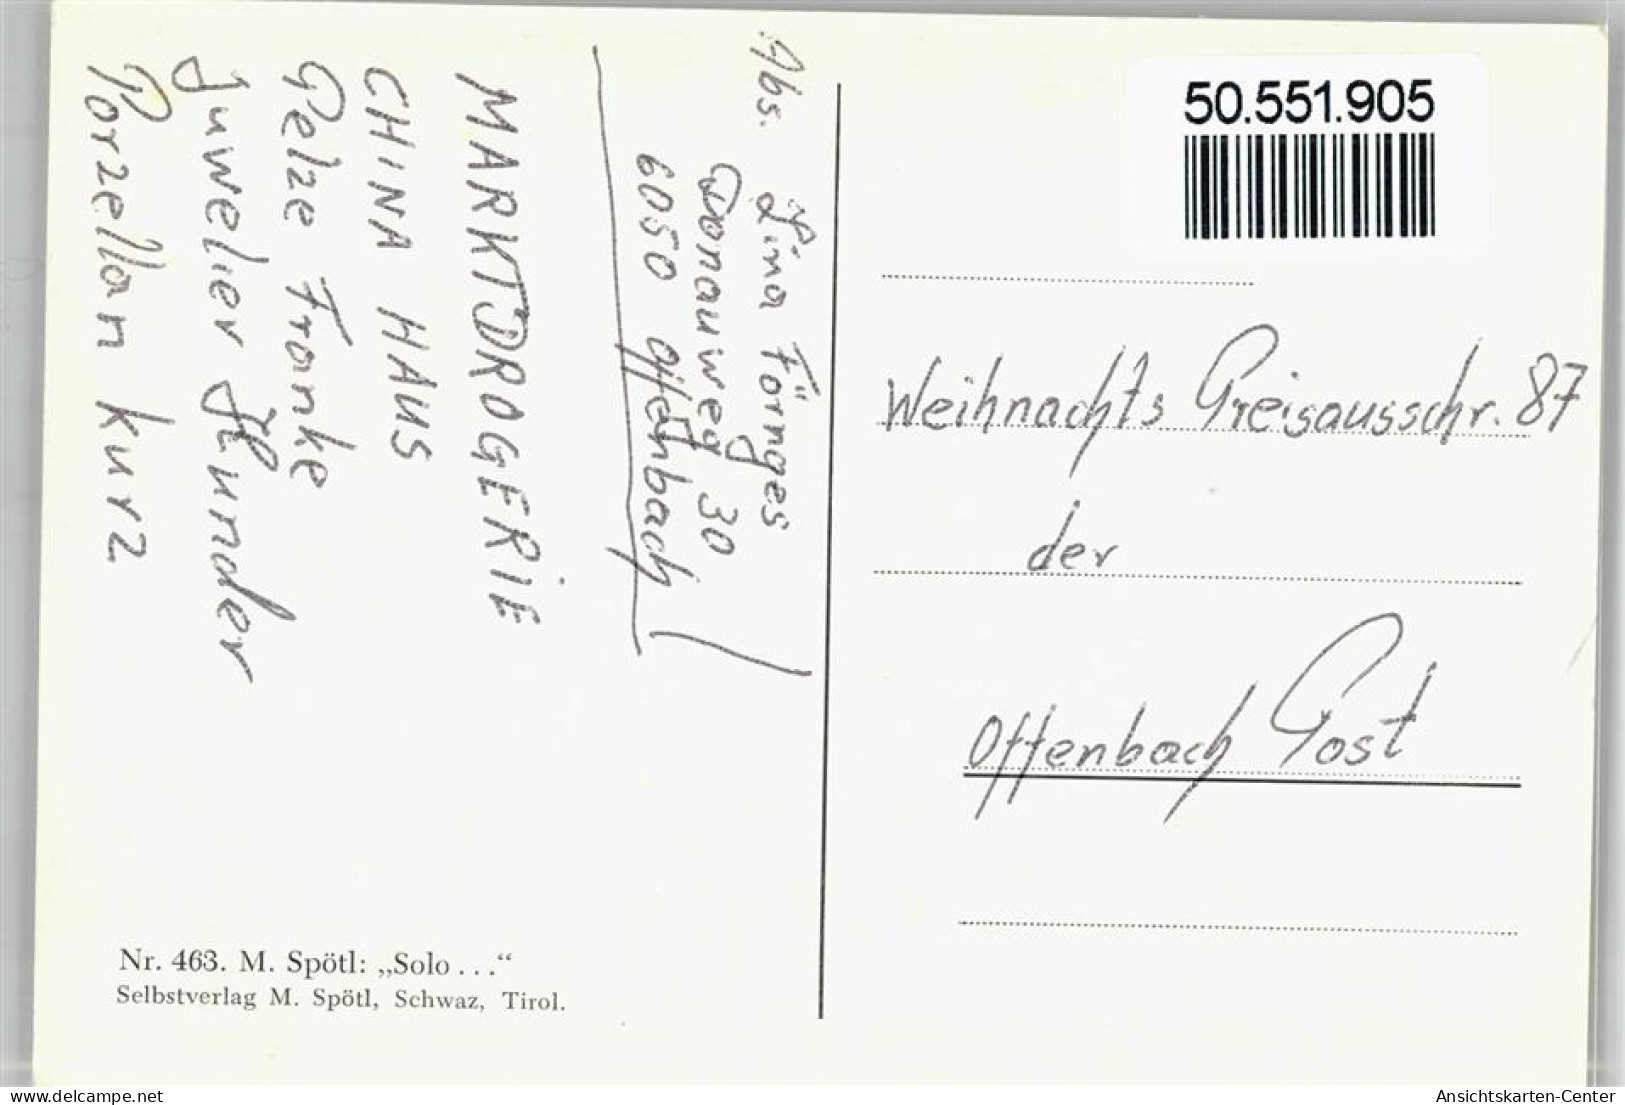 Abs. Lina Förnges
Donauweg 30
6050 Offenbach
MARKTDROGERIE
CHINA HAUS
Pelze Franke
Juwelier Hunder
Porzellan Kurz
50.551.905
Weihnachts Preisausschr. 87
der
Offenbach Post
Nr. 463. M. Spötl: „Solo . . .“
Selbstverlag M. Spötl, Schwaz, Tirol.
delcampe.net
Ansichtskarten-Center